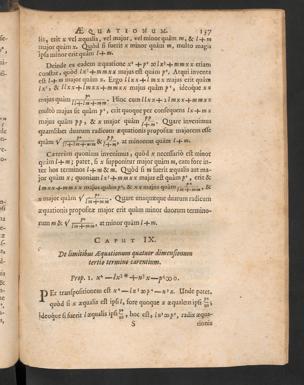 ÆQUATIONUM. 137
lis, erit x vel æqualis, vel major, vel minor quàm m, & l+m
major quàm x. Quòd si fuerit x minor quàm m, multo magis
ipsa minor erit quàm l+m.
Deinde ex eadem æquatione
constat, quòd majus est quàm p³, Atqui inventa
est l+m major quàm x. Ergo majus erit quàm
majus quàm p³, ideoque xx
majus quàm Hinc cum
multò majus sit quàm p³, erit quoque per consequens lx+mx
majus quàm pp, & x major quàm Quare invenimus
quamlibet duarum radicum æquationis propositæ majorem esse
quàm at minorem quàm l+m.
Cæterum quoniam invenimus, quòd x necessariò est minor
quàm l+m; patet, si x supponitur major quàm m, eam fore in-
ter hos terminos l+m & m. Quòd si m fuerit æqualis aut ma-
jor quàm x; quoniam majus est quàm p³, erit &
majus quàm p³, & xx majus quàm &
x major quàm Quare utraque duarum radicum
æquationis propositæ major erit quàm minor duorum termino-
rum m & at minor quàm l+m.
CAPUT IX.
De limitibus Æquationum quatuor dimensionum
tertio termino carentium.
Prop. 1.
PEr transpositionem est Unde patet,
quòd si x æqualis est ipsi l, fore quoque x æqualem ipsi
Ideoque si fuerit l æqualis ipsi hoc est, radix æqua-
S tionis